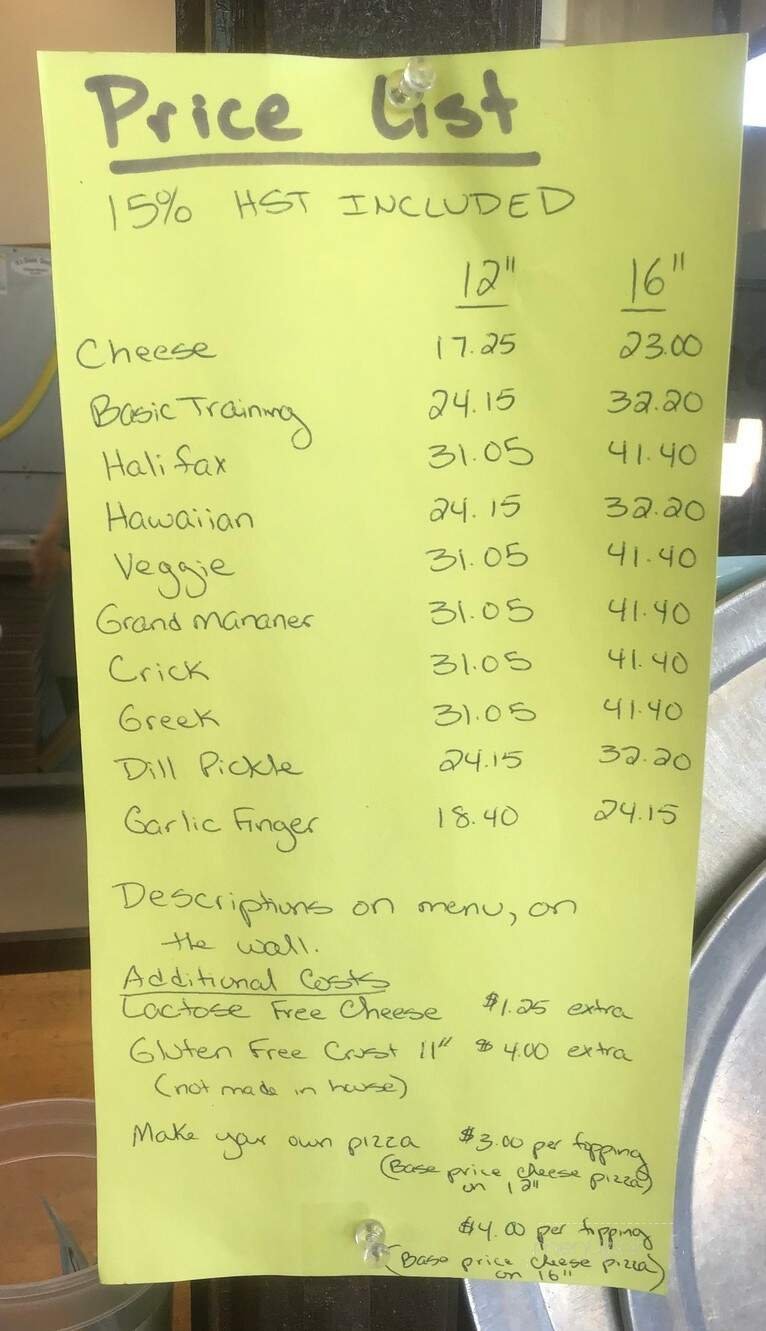 Price List
15% HST INCLUDED
12" 16"
Cheese 17.25 23.00
Basic Training 24.15 32.20
Halifax 31.05 41.40
Hawaiian 24.15 32.20
Veggie 31.05 41.40
Grand Mananer 31.05 41.40
Crick 31.05 41.40
Greek 31.05 41.40
Dill Pickle 24.15 32.20
Garlic Finger 18.40 24.15
Descriptions on menu, on
the wall.
Additional Costs
Lactose Free Cheese $1.25 extra
Gluten Free Crust 11" $4.00 extra
(not made in house)
Make your own pizza $3.00 per topping
(Base price cheese pizza)
on 12"
$4.00 per topping
(Base price cheese pizza)
on 16"